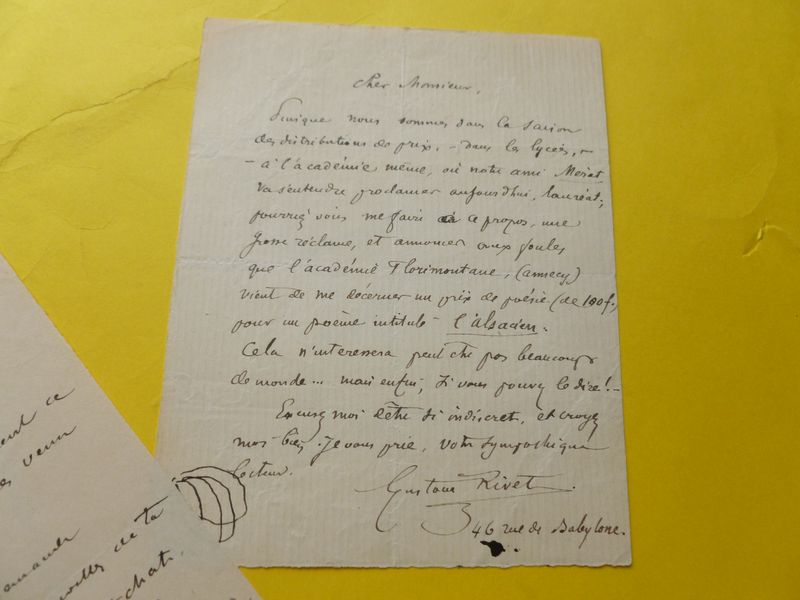 Cher Monsieur,
Puisque nous sommes dans la saison
des distributions de prix, – dans les lycées, –
– à l'académie même, où notre ami Mérat
va s'entendre proclamer aujourd'hui, lauréat;
pourriez vous me faire à ce propos, une
grosse réclame, et annoncer aux foules
que l'académie Florimontane, (annecy)
vient de me décerner un prix de poésie (de 100f.)
pour un poème intitulé – l'alsacien.
Cela n'interessera peut être pas beaucoup
de monde... mais enfin, si vous pouvez le dire! –
Excusez moi d'être si indiscret, et croyez
moi bien, je vous prie, votre sympathique
lecteur.
Gustave Rivet.
46 rue de Babylone.
ent ce
venir
de ta
chat.